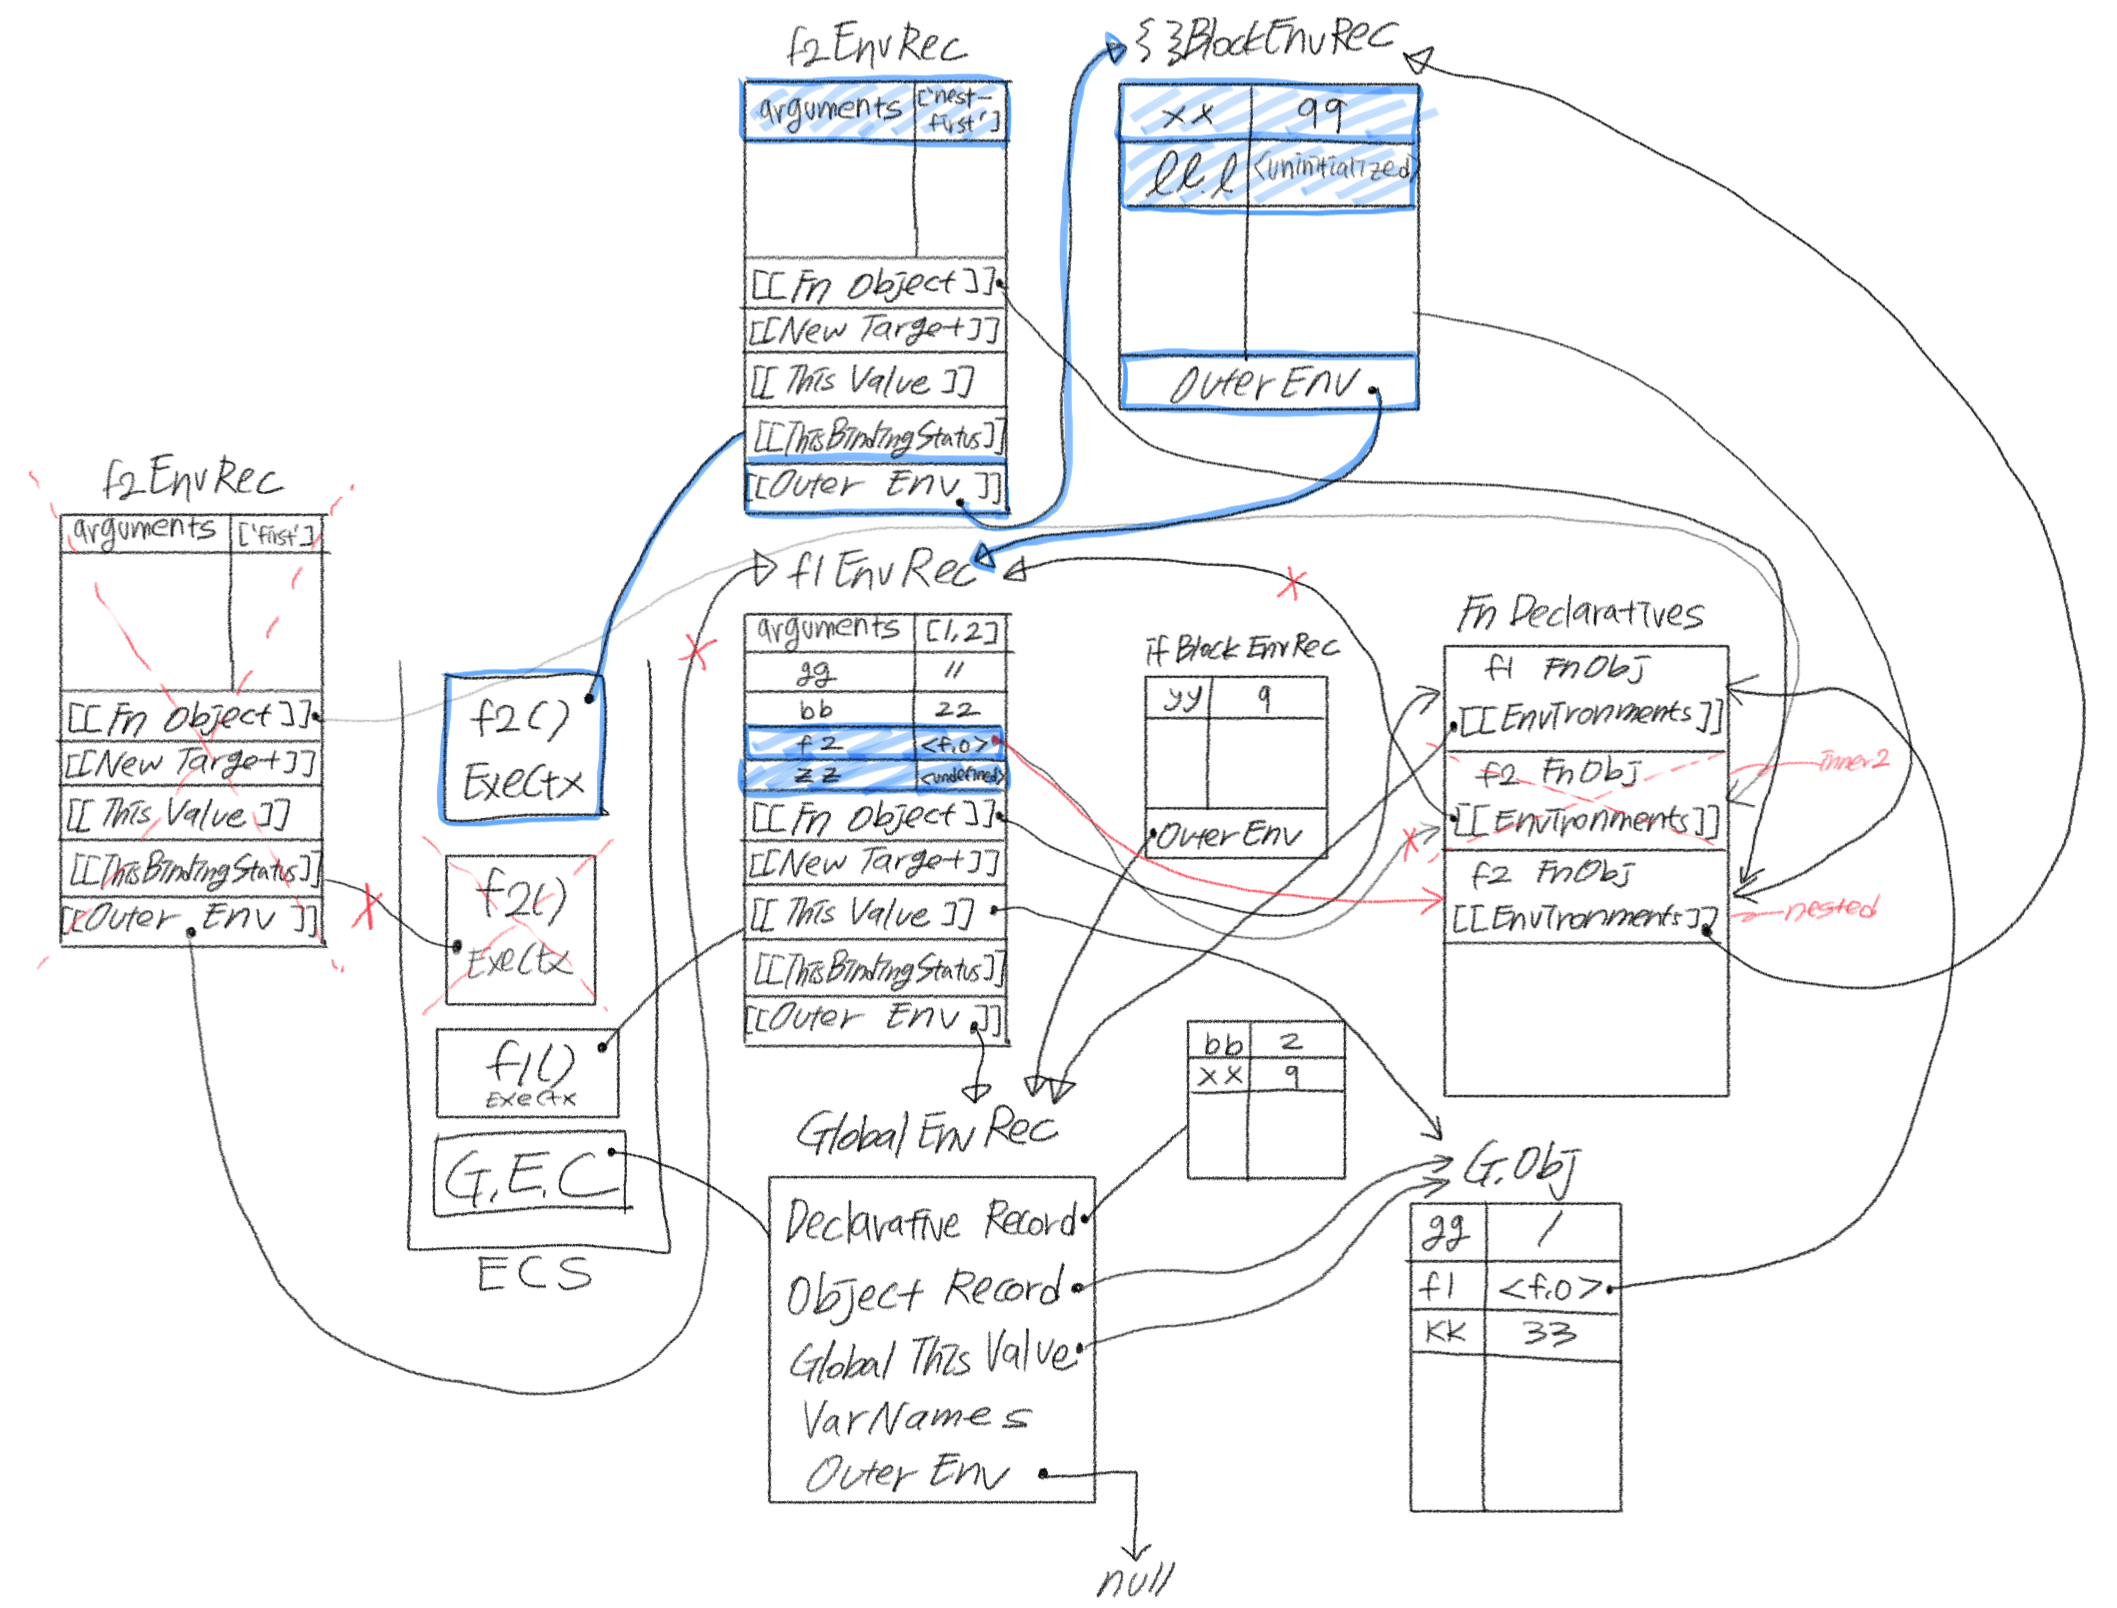 f2 EnvRec
arguments ['nest-first']
[[Fn Object]]
[[New Target]]
[[This Value]]
[[ThisBindingStatus]]
[[Outer Env]]
{ }BlockEnvRec
xx 99
<uninitialized>
OuterEnv
f2 EnvRec
arguments ['first']
[[Fn Object]]
[[New Target]]
[[This Value]]
[[ThisBindingStatus]]
[[Outer Env]]
f2()
Exectx
f2()
Exectx
f1()
Exectx
G.E.C
ECS
f1 EnvRec
arguments [1,2]
gg 11
bb 22
f2 <f.o>
zz <undefined>
[[Fn Object]]
[[New Target]]
[[This Value]]
[[ThisBindingStatus]]
[[Outer Env]]
if Block EnvRec
yy 9
OuterEnv
Fn Declaratives
f1 FnObj
[[EnvIronments]]
f2 FnObj
[[EnvIronments]]
inner2
f2 FnObj
[[EnvIronments]]
nested
bb 2
xx 9
Global Env Rec
Declarative Record
Object Record
Global This Value
VarNames
Outer Env
null
G.Obj
gg 1
f1 <f.o>
KK 33